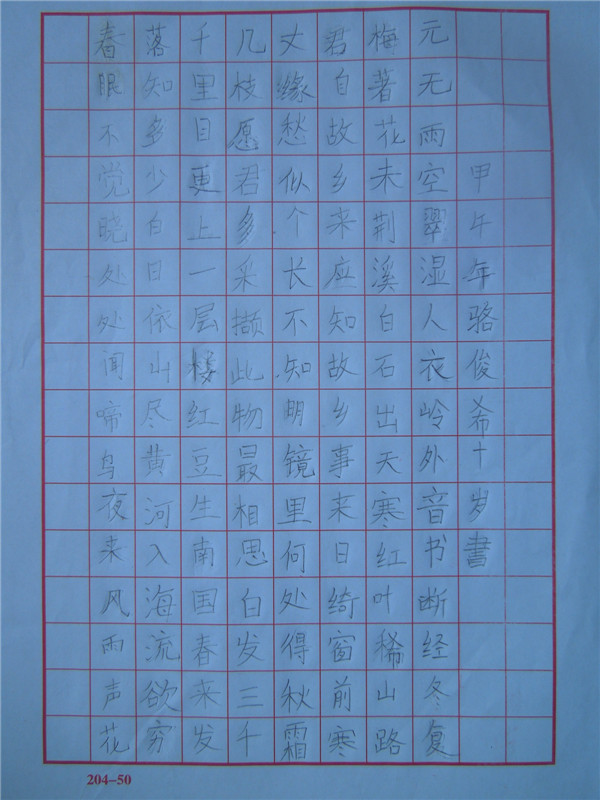 春眠不觉晓处处闻啼鸟夜来风雨声花
落知多少白日依山尽黄河入海流欲穷
千里目更上一层楼红豆生南国春来发
几枝愿君多采撷此物最相思白发三千
丈缘愁似个长不知明镜里何处得秋霜
君自故乡来应知故乡事来日绮窗前寒
梅著花未荆溪白石出天寒红叶稀山路
元无雨空翠湿人衣岭外音书断经冬复
甲午年骆俊希十岁書
204-50